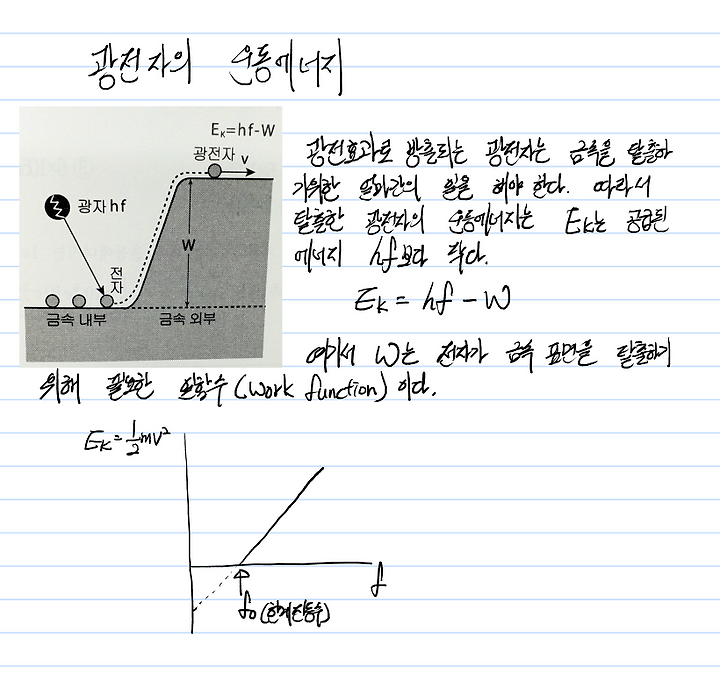 광전자의 운동에너지
E_K=hf-W
광전자
v
광자 hf
W
전자
금속 내부
금속 외부
광전효과로 방출되는 광전자는 금속을 탈출하
기위한 얼마간의 일을 해야 한다. 따라서
탈출한 광전자의 운동에너지는 E_K는 공급된
에너지 hf보다 작다.
E_K = hf - W
여기서 W는 전자가 금속 표면을 탈출하기
위해 필요한 일함수(work function) 이다.
E_K = 1/2 mv²
f
f₀ (한계진동수)